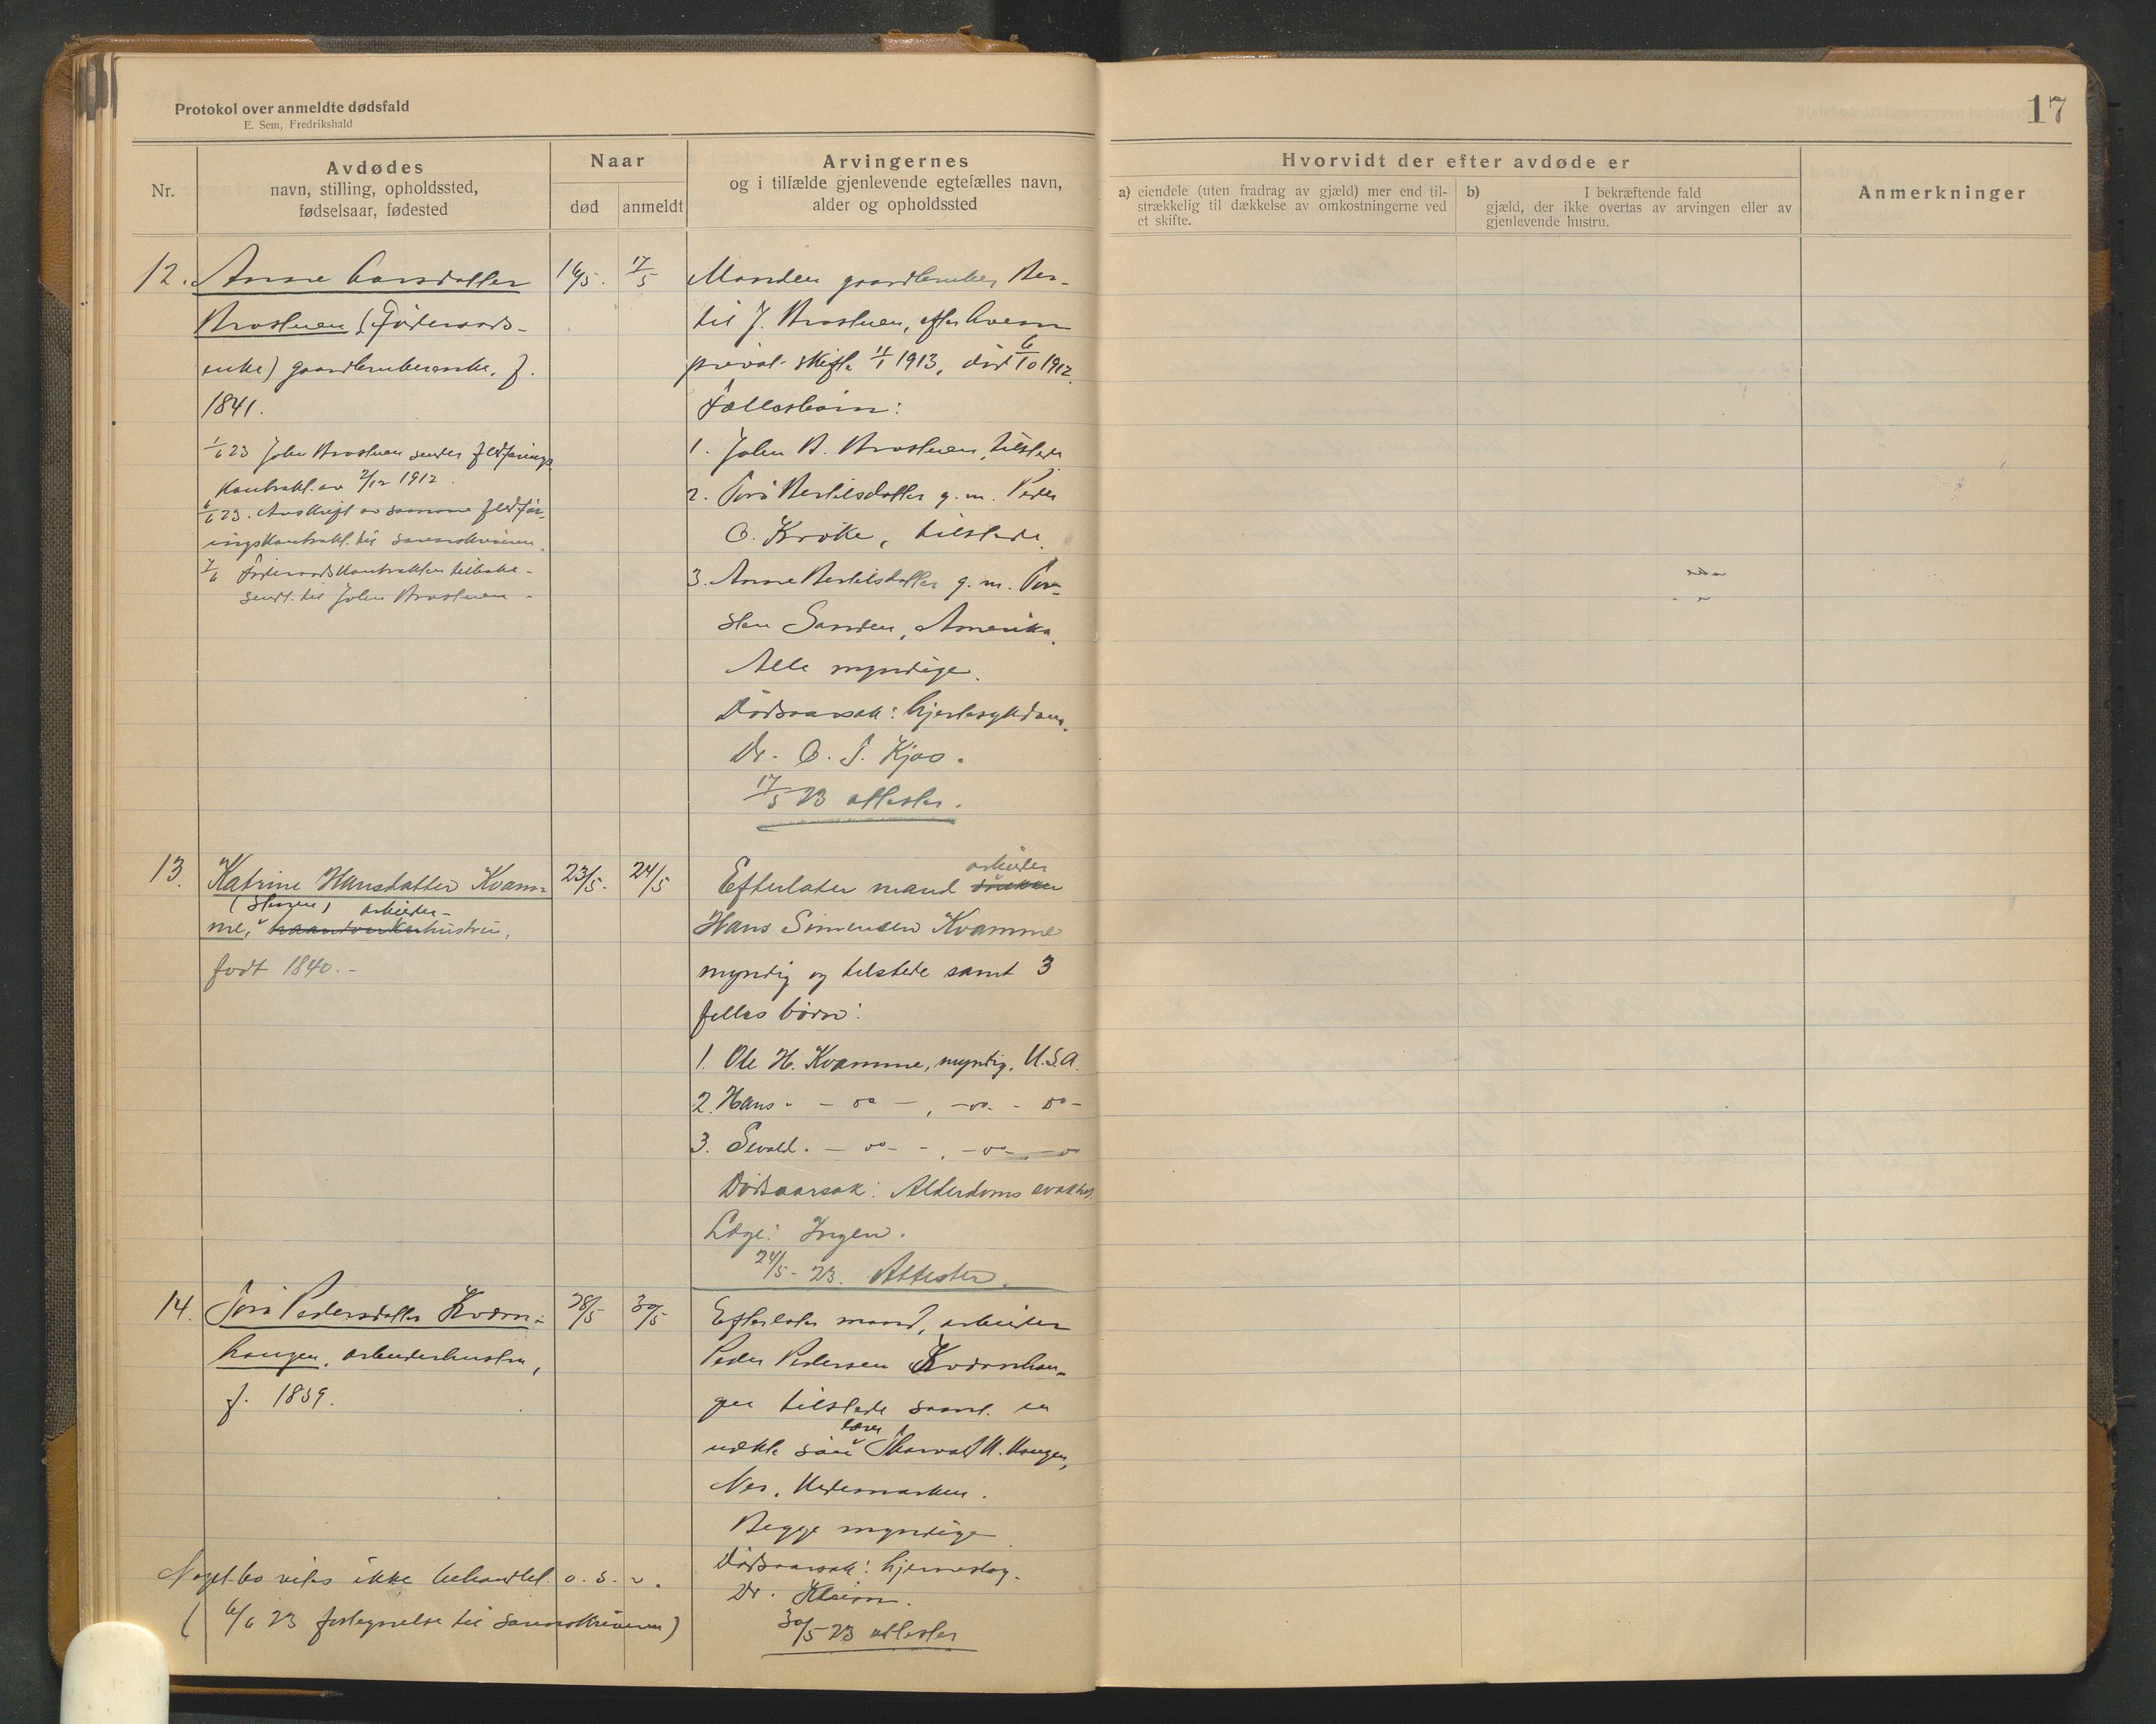 Protokol over anmeldte dødsfald
E. Sem, Fredrikshald
17
Nr.
Avdødes
navn, stilling, opholdssted,
fødselsaar, fødested
Naar
død
anmeldt
Arvingernes
og i tilfælde gjenlevende egtefælles navn,
alder og opholdssted
Hvorvidt der efter avdøde er
a) eiendele (uten fradrag av gjæld) mer end til-
strækkelig til dækkelse av omkostningerne ved
et skifte.
b) I bekræftende fald
gjæld, der ikke overtas av arvingen eller av
gjenlevende hustru.
Anmerkninger
12. Anne Larsdatter
Brostuen (Föderaads-
enke) gaardbrukerenke, f.
1841.
1/6 23 John Brostuen sender fledførings
kontrakt av 2/12 1912.
6/6 23. Avskrift av samme fledfør-
ingskontrakt til sorenskriveren.
7/6 Föderaadskontrakten tilbake-
sendt til John Brostuen.
16/5.
17/5
Manden gaardbruker Ber-
til J. Brostuen, efter hvem
privat skifte 11/1 1913, död 6/10 1912.
Fællesbarn:
1. John B. Brostuen, tilstede.
2. Toro Bertilsdatter g. m. Peder
O. Kroke, tilstede.
3. Anne Bertilsdatter g. m. Tor-
sten Sanden, Amerika.
Alle myndige.
Dödsaarsak: hjertesykdom.
Dr. O. T. Kjos.
17/5 23 attester.
13. Katrine Hansdatter Kvam-
(Stugen) arbeider-
me, haandverkerhustru,
født 1840.-
23/5.
24/5
arbeider
Efterlater mand snekker
Hans Simensen Kvamme
myndig og tilstede samt 3
felles børn:
1. Ole H. Kvamme, myndig, U.S.A.
2. Hans " - do -, - do - do -
3. Sevald. - do - -, - do - - do
Dödsaarsak: Alderdoms svakhet
Læge: Ingen.
24/5 - 23. Attester.
14. Toro Pedersdatter Kværn-
haugen, arbeiderhustru,
f. 1839.
28/5
30/5
Efterlater mand, arbeider
Peder Pedersen Kværnhau-
gen tilstede samt en
lærer
uekte sön Thorvald H. Haugen,
Nes, Hedemarken.
Begge myndige.
Dödsaarsak: hjerneslag.
Dr. Kleim.
30/5 23 attester
Noget bo vites ikke behandlet o. s. v.
( 6/6 23 fortegnelse til sorenskriveren)